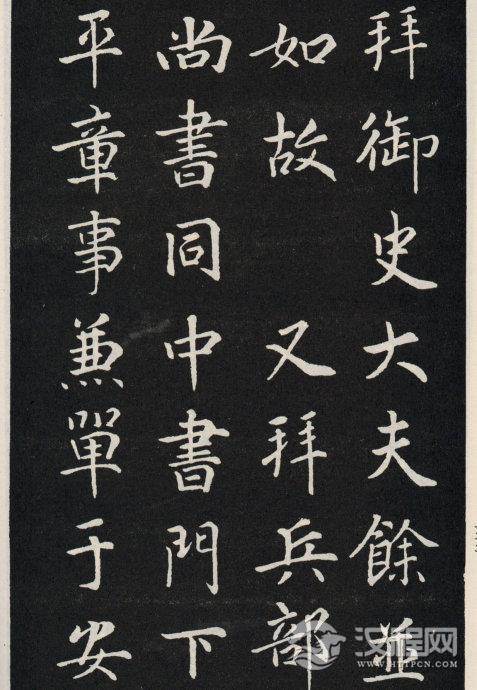 拜御史大夫餘並
如故 又拜兵部
尚書同中書門下
平章事兼單于安
汉程网
WWW.HTTPCN.COM